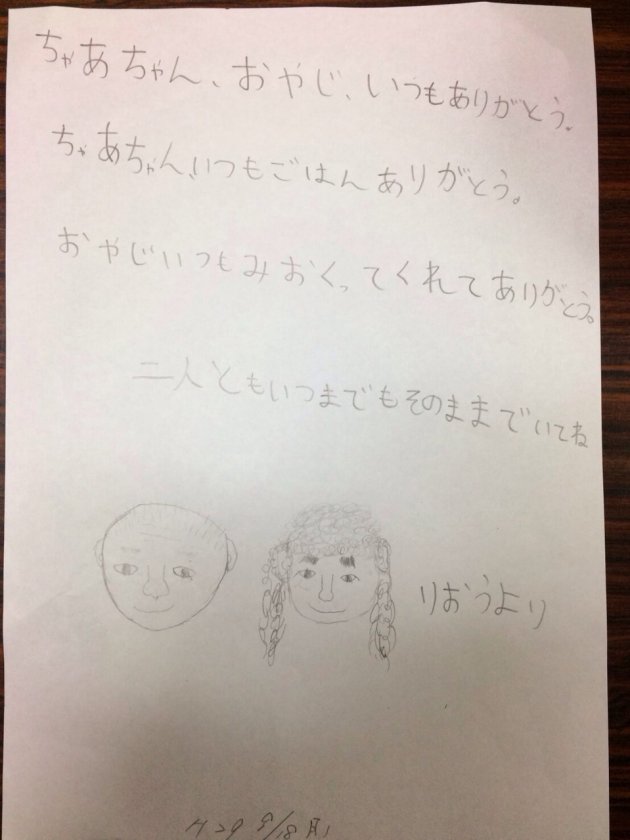 ちゃあちゃん、おやじ、いつもありがとう。
ちゃあちゃん、いつもごはんありがとう。
おやじいつもみおくってくれてありがとう。
二人ともいつまでもそのままでいてね
りおうより
H29 9/18 月)